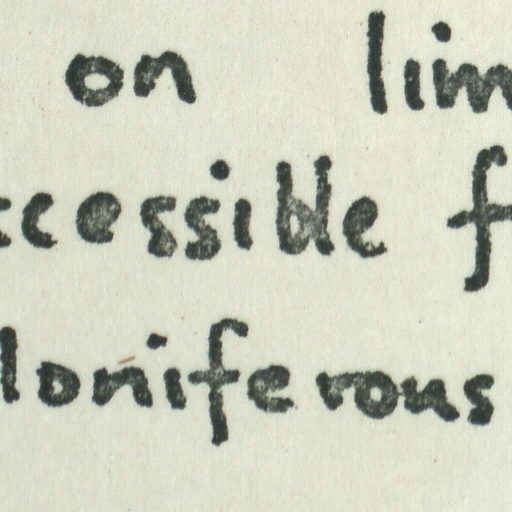 on lim
ccessible f
loniferous